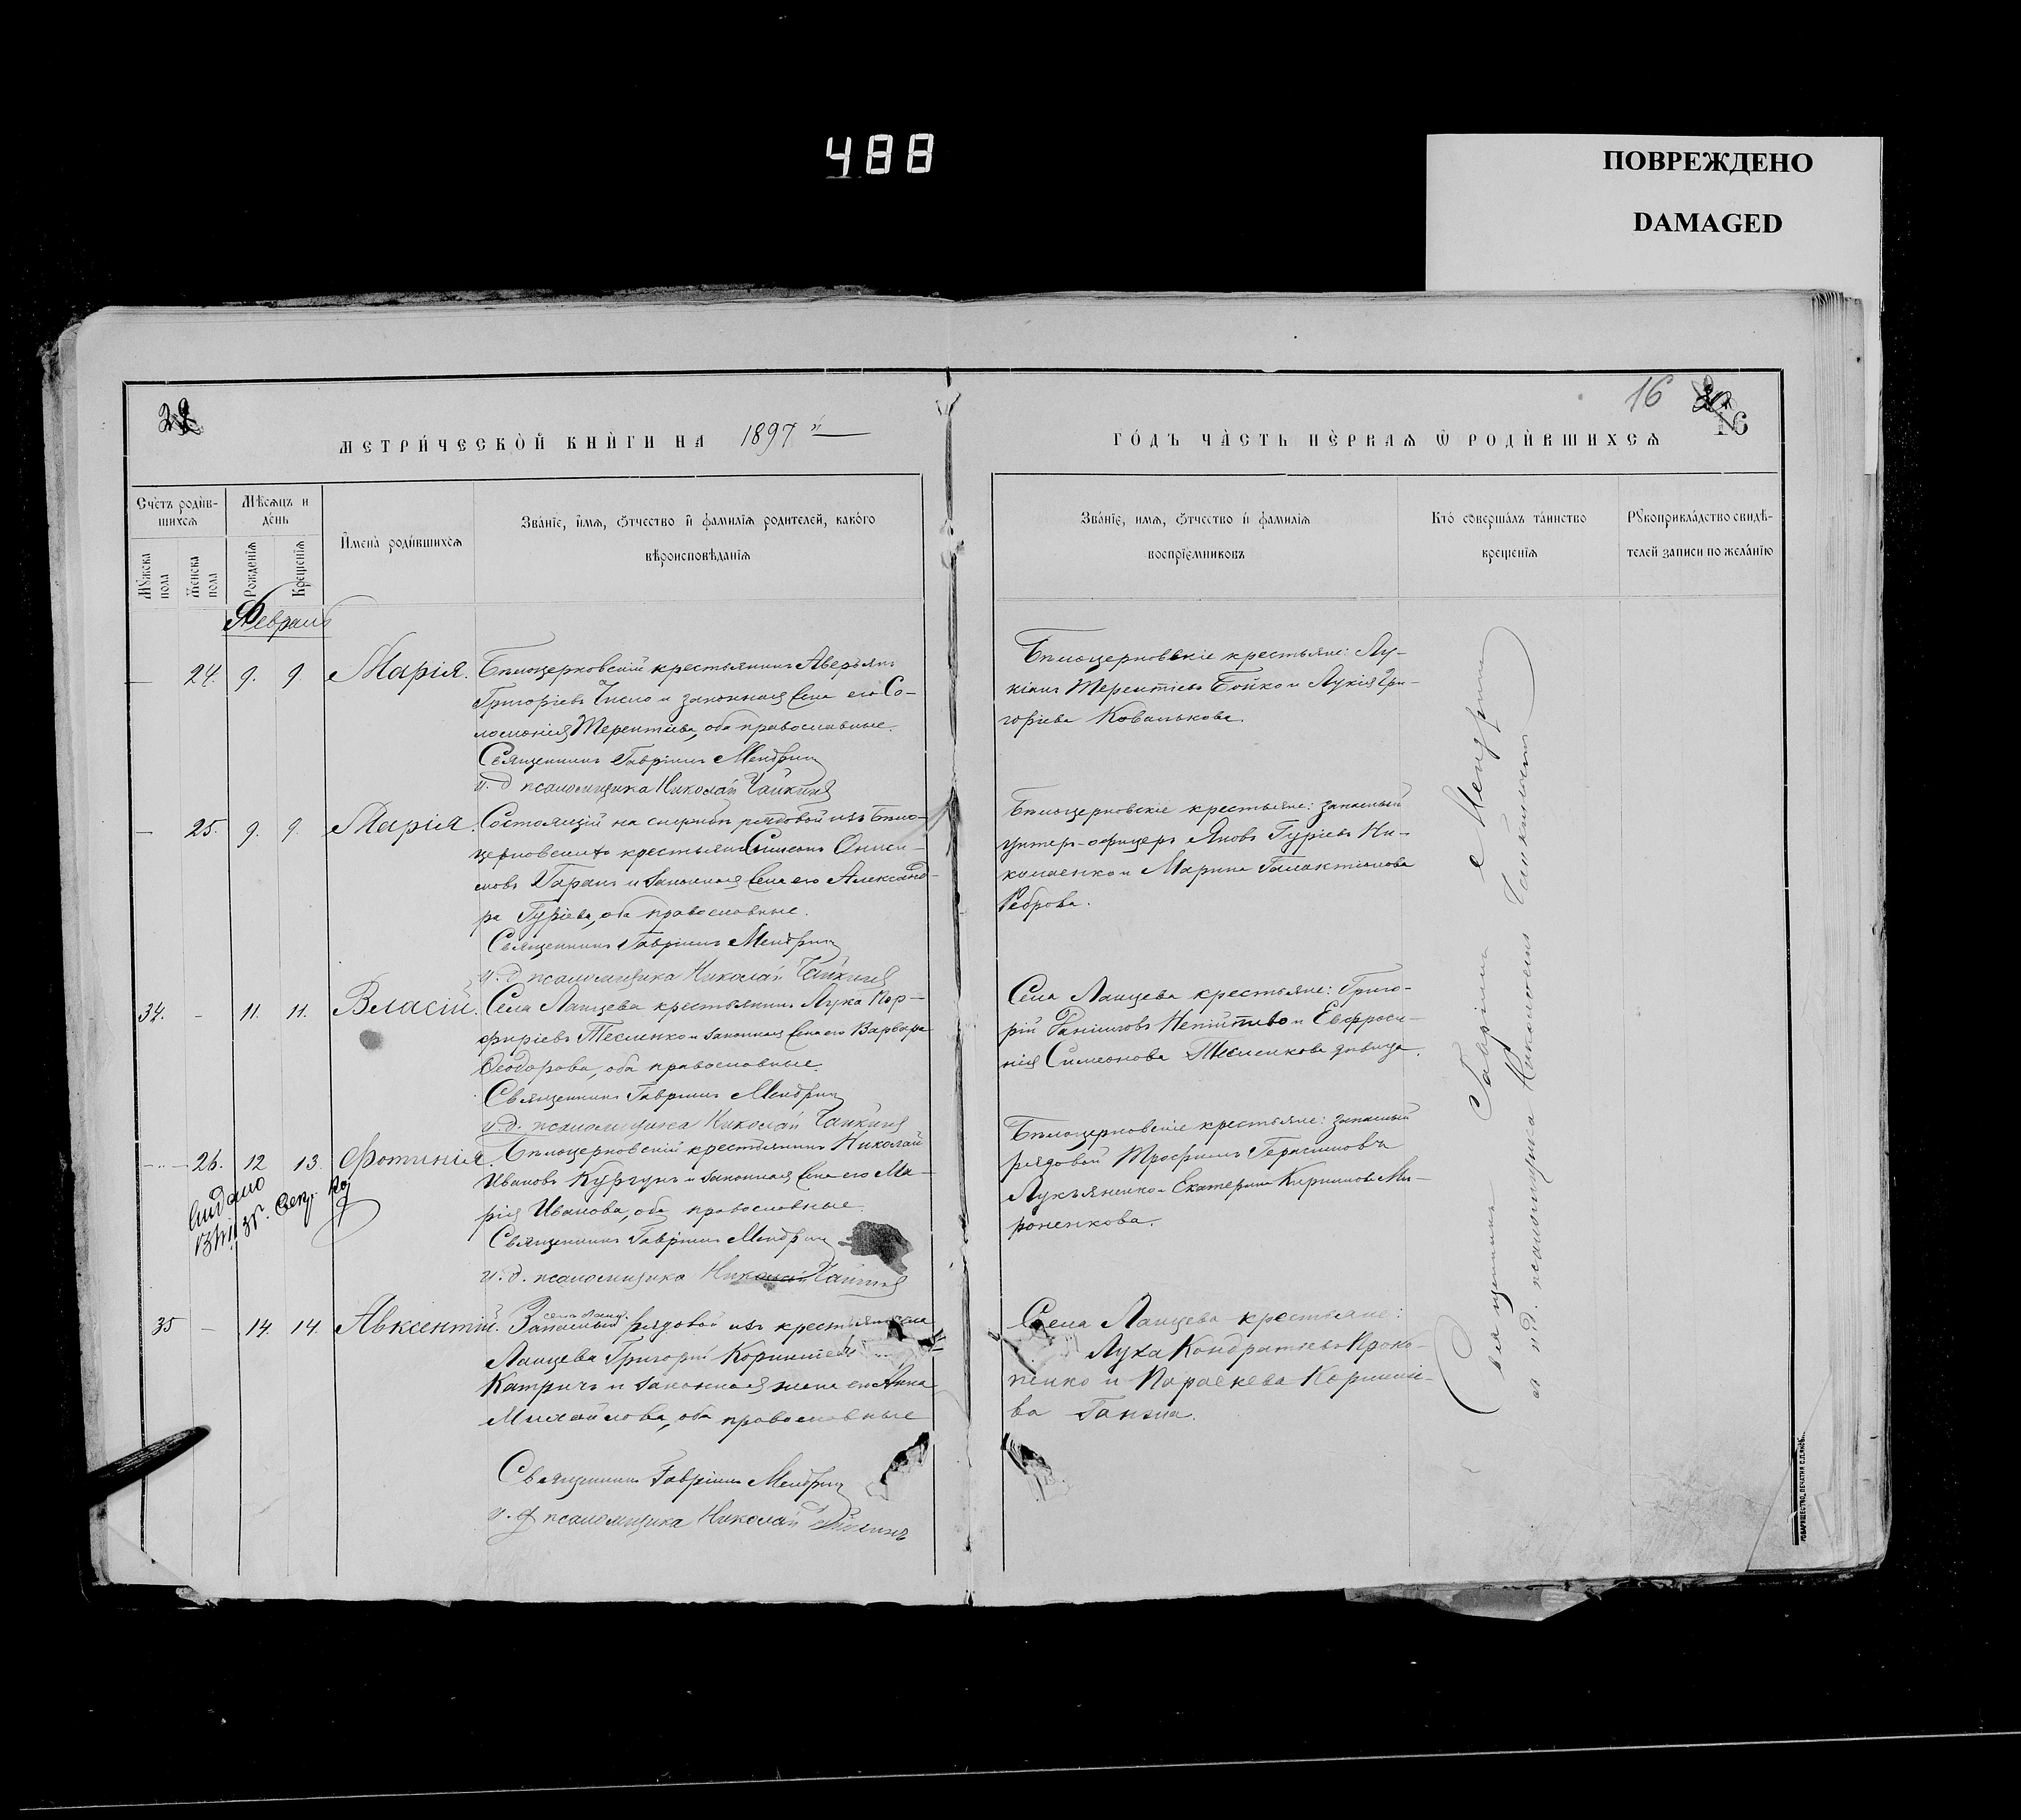 488
ПОВРЕЖДЕНО
DAMAGED
16
16
МЕТРИ́ЧЕСКОЙ КНИ́ГИ НА 1897 й
ГО́ДЪ ЧА́СТЬ ПЕ́РВАѦ Ѡ РОДИ́ВШИХСѦ
Сче́тъ роди́в-
шихсѧ
Мꙋжска пола
Женска пола
Мѣ́сѧцъ и
де́нь
Рожденїѧ
Крещенїѧ
И҆мена̀ роди́вшихсѧ
Зва́нїе, и҆́мѧ, ѻ҆́тчество и҆ фамилїѧ родителей, како́го
вѣроисповѣ́данїѧ
Зва́нїе, имѧ, ѻ҆́тчество и҆ фамилїѧ
воспрїемниковъ
Кто̀ соверша́лъ та́инство
крещенїѧ
Рꙋкоприкла́дство свидѣ́-
телей записи по жела́нїю
Февраль
— 24. 9. 9. Марія.
Бѣлоцерковскій крестьянинъ Аверьянъ
Григоріевъ Число и законная жена его Со-
ломонія Терентіева, оба православные.
Священникъ Гавріилъ Мендринъ
и. д псаломщика Николай Чайкинъ
Бѣлоцерковскіе крестьяне: Лу-
кіанъ Терентіевъ Бойко и Лукія Гри-
горіева Ковалькова.
— 25. 9. 9. Марія.
Состоящій на службѣ рядовой изъ Бѣло-
церковскихъ крестьянъ Симеонъ Ониси-
мовъ Таранъ и законная жена его Александ-
ра Гуріева, оба православные.
Священникъ Гавріилъ Мендринъ
и. д псаломщика Николай Чайкинъ
Бѣлоцерковскіе крестьяне: запасный
унтеръ-офицеръ Яковъ Гуріевъ Ни-
колаенко и Марина Галактіонова
Реброва.
34. — 11. 11. Власій.
Села Ланцева крестьянинъ Лука Пор-
фиріевъ Тесленко и законная жена его Варвара
Ѳеодорова, оба православные.
Священникъ Гавріилъ Мендринъ
и. д. псаломщика Николай Чайкинъ
Села Ланцева крестьяне: Григо-
рій Даніиловъ Непійпиво и Евфроси-
нія Симеонова Тесленкова дѣвица.
— 26. 12 13. Фотинія.
Бѣлоцерковскій крестьянинъ Николай
Ивановъ Кургунъ и законная жена его Ма-
рія Иванова, оба православные.
Священникъ Гавріилъ Мендринъ
и. д. псаломщика Николай Чайкинъ
Бѣлоцерковскіе крестьяне: запасный
рядовой Трофимъ Герасимовъ
Лукьяненко и Екатерина Кириллова Ми-
роненкова.
35 — 14. 14. Авксентій.
Запасный рядовой изъ крестьянъ села
Ланцева Григорій Корниліевъ
Катричъ и законная жена его Анна
Михайлова, оба православные
Священникъ Гавріилъ Мендринъ
и. д псаломщика Николай Чайкинъ
Села Ланцева крестьяне:
Лука Кондратіевъ Проко-
пенко и Параскева Корниліе-
ва Ганжа.
Священникъ Гавріилъ Мендринъ
и и.д. псаломщика Николаемъ Чайкинымъ